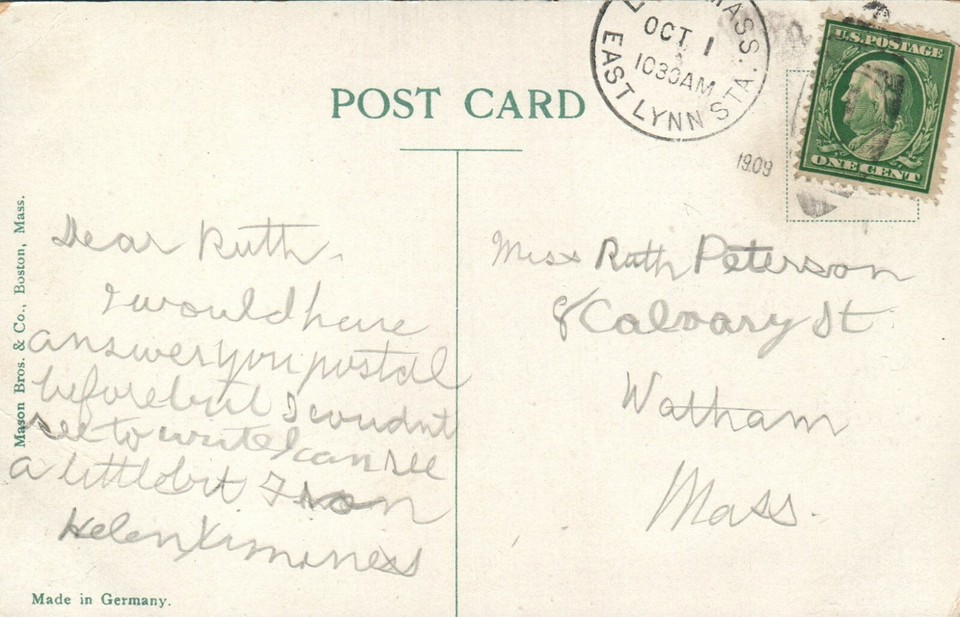 POST CARD
MASS.
OCT 1
1030AM
EAST LYNN STA.
1909
U.S. POSTAGE
ONE CENT
Mason Bros. & Co., Boston, Mass.
Dear Ruth.
I would have
answer you postal
before but I coudnt
see to write I can see
a little bit
Helen
Miss Ruth Peterson
8 Calvary St
Watham
Mass.
Made in Germany.